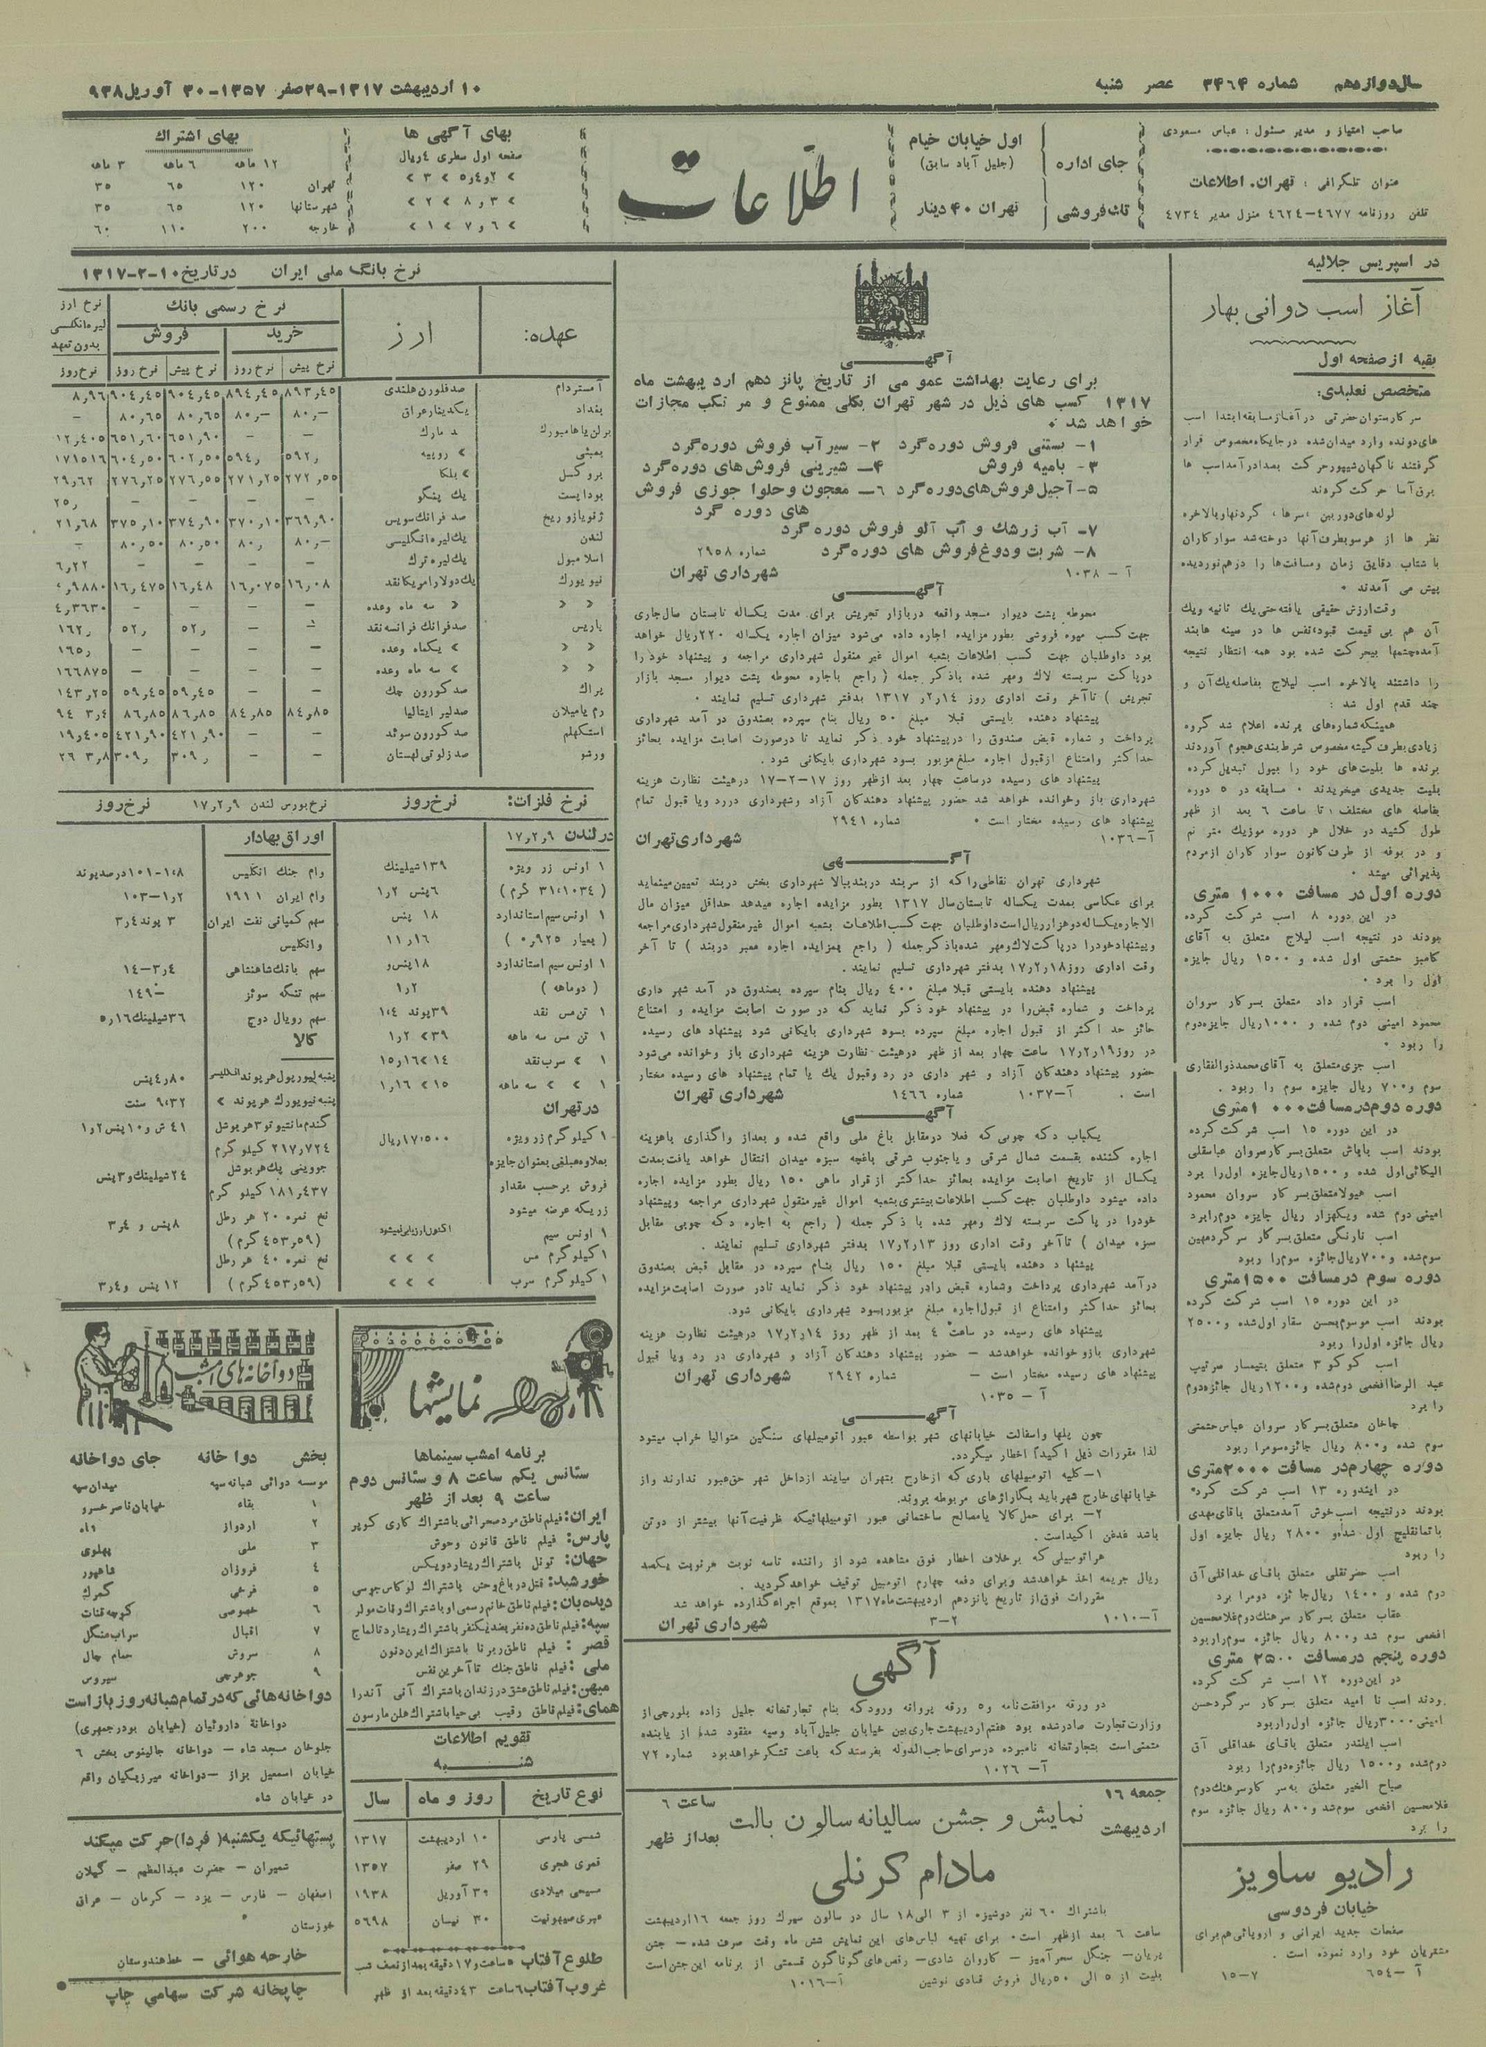 سال دوازدهم شماره ۳۴۶۴ عصر شنبه
۱۰ اردیبهشت ۱۳۱۷-۲۹ صفر ۱۳۵۷-۳۰ آوریل ۹۳۸
صاحب امتیاز و مدیر مسئول: عباس مسعودی
عنوان تلگرافی: تهران. اطلاعات
تلفن روزنامه ۴۶۷۷-۴۶۲۴ منزل مدیر ۴۷۳۴
جای اداره
اول خیابان خیام
(جلیل آباد سابق)
تك فروشی
تهران ۴۰ دینار
اطلاعات
بهای آگهی ها
صفحه اول سطری ٤ ریال
بهای اشتراك
۱۲ ماهه ۶ ماهه ۳ ماهه
تهران ۱۲۰ ۶۵ ۳۵
شهرستانها ۱۲۰ ۶۵ ۳۵
خارجه ۲۰۰ ۱۱۰ ۶۰
در اسپریس جلالیه
آغاز اسب دوانی بهار
بقیه از صفحه اول
سر کار ستوان حضرتی در آغاز مسابقه ابتدا اسب
های دونده وارد میدان شده در جایگاه مخصوص قرار
گرفتند ناگهان شیپور حرکت بصدا در آمد اسب ها
برق آسا حرکت کردند
نظر ها از هر سو بطرف آنها دوخته شد سوارکاران
با شتاب دقایق زمان و مسافت‌ها را درهم نوردیده
پیش می آمدند .
را داشتند بالاخره اسب لیلاج بفاصله يك آن و
چند قدم اول شد :
همینکه شماره‌های برنده اعلام شد گروه
زیادی بطرف گیشه مخصوص شرط بندی هجوم آوردند
برنده ها بلیت‌های خود را بپول تبدیل کرده
بلیت جدیدی میخریدند . مسابقه در ۵ دوره
بفاصله های مختلف، تا ساعت ۶ بعد از ظهر
طول کشید در خلال هر دوره موزيك مترنم
و در بوفه از طرف کانون سوار کاران از مردم
پذیرائی میشد .
دوره اول در مسافت ۱۰۰۰ متری
در این دوره ۸ اسب شرکت کرده
بودند در نتیجه اسب لیلاج متعلق به آقای
کامبیز حشمتی اول شده و ۱۵۰۰ ریال جایزه
اول را برد .
اسب قرار داد متعلق بسر کار سروان
محمود امینی دوم شده و ۱۰۰۰ ریال جایزه دوم
را ربود .
اسب جزی متعلق به آقای محمد ذوالفقاری
سوم و ۷۰۰ ریال جایزه سوم را ربود .
دوره دوم در مسافت ۱۰۰۰ متری
در این دوره ۱۵ اسب شرکت کرده
بودند اسب باپاش متعلق بسر کار سروان عباسقلی
الیکائی اول شده و ۱۵۰۰ ریال جایزه اول را برد
اسب هیولا متعلق بسر کار سروان محمود
امینی دوم شده و یکهزار ریال جایزه دوم را برد
اسب نارنگی متعلق بسر کار سرگرد مهین
سوم شده و ۷۰۰ ریال جائزه سوم را ربود
دوره سوم در مسافت ۱۵۰۰ متری
در این دوره ۱۵ اسب شرکت کرده
بودند اسب موسوم بحسن سقار اول شده و ۲۵۰۰
ریال جائزه اول را ربود
اسب کوکو ۳ متعلق بتیمسار سرتیپ
عبد الرضا افخمی دوم شده و ۱۲۰۰ ریال جائزه دوم
را برد
چاخان متعلق بسر کار سروان عباس حشمتی
سوم شده و ۸۰۰ ریال جائزه سوم را ربود
دوره چهارم در مسافت ۲۰۰۰ متری
در ایندوره ۱۳ اسب شرکت کرده
بودند در نتیجه اسب خوش آمد متعلق باقای مهدی
باتمانقلیج اول شده و ۲۸۰۰ ریال جایزه اول
را ربود
اسب حضرتقلی متعلق باقای خداقلی آق
دوم شده و ۱۴۰۰ ریال جائزه دوم را برد
عقاب متعلق بسر کار سرهنك دوم غلامحسین
افخمی سوم شد و ۸۰۰ ریال جائزه سوم را ربود
دوره پنجم در مسافت ۲۵۰۰ متری
در این دوره ۱۲ اسب شرکت کرده
بودند اسب نا امید متعلق بسر کار سرگرد حسن
امینی ۳۰۰۰ ریال جائزه اول را ربود
اسب ایلندر متعلق باقای خداقلی آق
دوم شده و ۱۵۰۰ ریال جائزه دوم را ربود
صباح الخیر متعلق به سر کار سرهنك دوم
غلامحسین افخمی سوم شد و ۸۰۰ ریال جائزه سوم
را برد
رادیو ساویز
خیابان فردوسی
صفحات جدید ایرانی و اروپائی هم برای
مشتریان خود وارد نموده است .
آ - ۶۵۴ ۷-۱۵
آگهی
برای رعایت بهداشت عمومی از تاریخ پانزدهم اردیبهشت ماه
۱۳۱۷ کسب های ذیل در شهر تهران بکلی ممنوع و مرتکب مجازات
خواهد شد .
۱- بستنی فروش دوره گرد ۲- سیر آب فروش دوره گرد
۳- بامیه فروش ۴- شیرینی فروش های دوره گرد
۵- آجیل فروش‌های دوره گرد ۶- معجون و حلوا جوزی فروش
های دوره گرد
۷- آب زرشك و آب آلو فروش دوره گرد
۸- شربت و دوغ فروش های دوره گرد شماره ۲۹۵۸
آ - ۱۰۳۸ شهرداری تهران
آگهی
محوطه پشت دیوار مسجد واقعه در بازار تجریش برای مدت یکساله تابستان سال جاری
جهت کسب میوه فروشی بطور مزایده اجاره داده می‌شود میزان اجاره یکساله ۲۲۰ ریال خواهد
بود داوطلبان جهت کسب اطلاعات بشعبه اموال غیر منقول شهرداری مراجعه و پیشنهاد خود را
در پاکت سربسته لاك و مهر شده با ذکر جمله ( راجع باجاره محوطه پشت دیوار مسجد بازار
تجریش ) تا آخر وقت اداری روز ۱۷٫۲٫۱۴ بدفتر شهرداری تسلیم نمایند .
پیشنهاد دهنده بایستی قبلا مبلغ ۵۰ ریال بنام سپرده بصندوق در آمد شهرداری
پرداخت و شماره قبض صندوق را در پیشنهاد خود ذکر نماید تا در صورت اصابت مزایده بحائز
حداکثر و امتناع از قبول اجاره مبلغ مزبور بسود شهرداری بایگانی شود .
پیشنهاد های رسیده در ساعت چهار بعد از ظهر روز ۱۷-۲-۱۷ در هیئت نظارت هزینه
شهرداری باز و خوانده خواهد شد حضور پیشنهاد دهندگان آزاد و شهرداری در رد و یا قبول تمام
پیشنهاد های رسیده مختار است . شماره ۲۹۴۱
آ-۱۰۳۶ شهرداری تهران
آگهی
شهرداری تهران نقاطی را که از سر بند دربند ببالا شهرداری بخش دربند تعیین مینماید
برای عکاسی بمدت یکساله تابستان سال ۱۳۱۷ بطور مزایده اجاره میدهد حداقل میزان مال
الاجاره یکساله دو هزار ریال است داوطلبان جهت کسب اطلاعات بشعبه اموال غیر منقول شهرداری مراجعه
وقت اداری روز ۱۷٫۲٫۱۸ بدفتر شهرداری تسلیم نمایند.
پیشنهاد دهنده بایستی قبلا مبلغ ۴۰۰ ریال بنام سپرده بصندوق در آمد شهر داری
پرداخت و شماره قبض را در پیشنهاد خود ذکر نماید که در صورت اصابت مزایده و امتناع
حائز حد اکثر از قبول اجاره مبلغ سپرده بسود شهرداری بایگانی شود پیشنهاد های رسیده
در روز ۱۷٫۲٫۱۹ ساعت چهار بعد از ظهر در هیئت نظارت هزینه شهرداری باز و خوانده می‌شود
حضور پیشنهاد دهندگان آزاد و شهر داری در رد و قبول يك یا تمام پیشنهاد های رسیده مختار
است . آ-۱۰۳۷ شماره ۱۴۶۶ شهرداری تهران
آگهی
یکباب دکه چوبی که فعلا در مقابل باغ ملی واقع شده و بعد از واگذاری با هزینه
اجاره کننده بقسمت شمال شرقی و یا جنوب شرقی باغچه سبزه میدان انتقال خواهد یافت بمدت
یکسال از تاریخ اصابت مزایده بحائز حداکثر از قرار ماهی ۱۵۰ ریال بطور مزایده اجاره
داده میشود داوطلبان جهت کسب اطلاعات بیشتری بشعبه اموال غیر منقول شهرداری مراجعه و پیشنهاد
خود را در پاکت سربسته لاك و مهر شده با ذکر جمله ( راجع به اجاره دکه چوبی مقابل
سبزه میدان ) تا آخر وقت اداری روز ۱۷٫۲٫۱۳ بدفتر شهرداری تسلیم نمایند .
پیشنهاد دهنده بایستی قبلا مبلغ ۱۵۰ ریال بنام سپرده در مقابل قبض بصندوق
درآمد شهرداری پرداخت و شماره قبض را در پیشنهاد خود ذکر نماید تا در صورت اصابت مزایده
بحائز حداکثر و امتناع از قبول اجاره مبلغ مزبور بسود شهرداری بایگانی شود.
پیشنهاد های رسیده در ساعت ٤ بعد از ظهر روز ۱۷٫۲٫۱۴ در هیئت نظارت هزینه
شهرداری باز و خوانده خواهد شد - حضور پیشنهاد دهندگان آزاد و شهرداری در رد و یا قبول
پیشنهاد های رسیده مختار است - شماره ۲۹۴۲ شهرداری تهران
آ - ۱۰۳۵
آگهی
چون پلها و اسفالت خیابانهای شهر بواسطه عبور اتومبیلهای سنگین متوالیا خراب میشود
لذا مقررات ذیل اکیداً اخطار میگردد.
۱- کلیه اتومبیلهای باری که از خارج بتهران میایند از داخل شهر حق عبور ندارند و از
خیابانهای خارج شهر باید بگاراژهای مربوطه بروند.
۲- برای حمل کالا یا مصالح ساختمانی عبور اتومبیلهائیکه ظرفیت آنها بیشتر از دو تن
باشد غدغن اکید است.
هر اتومبیلی که برخلاف اخطار فوق مشاهده شود از راننده تا سه نوبت هر نوبت یکصد
ریال جریمه اخذ خواهد شد و برای دفعه چهارم اتومبیل توقیف خواهد گردید .
مقررات فوق از تاریخ پانزدهم اردیبهشت ماه ۱۳۱۷ بموقع اجراء گذارده خواهد شد
آ-۱۰۱۰ ۲-۳ شهرداری تهران
آگهی
دو ورقه موافقت نامه و ۵ ورقه پروانه ورود که بنام تجارتخانه جلیل زاده بلورچی از
وزارت تجارت صادر شده بود هفتم اردیبهشت جاری بین خیابان جلیل آباد و سپه مفقود شده از یابنده
متمنی است بتجارتخانه نامبرده در سرای حاجب الدوله بفرستد که باعث تشکر خواهد بود شماره ۷۲
آ- ۱۰۲۶
جمعه ۱۶ اردیبهشت
نمایش و جشن سالیانه سالون بالت
ساعت ۶ بعد از ظهر
مادام کرنلی
باشتراك ۶۰ نفر دوشیزه از ۳ الی ۱۸ سال در سالون سیرك روز جمعه ۱۶ اردیبهشت
ساعت ۶ بعد از ظهر است . برای تهیه لباس‌های این نمایش شش ماه وقت صرف شده - جشن
پریان - جنگل سحر آمیز - کاروان شادی - رقص‌های گوناگون قسمتی از برنامه این جشن است
بلیت از ۵ الی ۵۰ ریال فروش قنادی نوشین آ-۱۰۱۶
نرخ بانگ ملی ایران در تاریخ ۱۰-۲-۱۳۱۷
عهده: ارز نرخ رسمی بانك نرخ ارز لیره انگلیسی بدون تعهد
خرید فروش
نرخ پیش نرخ روز نرخ پیش نرخ روز نرخ روز
آمستردام صد فلورن هلندی ۸۹۳٫۴۵ ۸۹۴٫۴۵ ۹۰۴٫۴۵ ۹۰۴٫۴۵ ۸٫۹۶
بغداد یکدینار عراق ۸۰٫- ۸۰٫- ۸۰٫۶۵ ۸۰٫۶۵ -
برلن یا هامبورك صد مارك - - ۶۵۱٫۹۰ ۶۵۱٫۶۰ ۱۲٫۴۰۵
بمبئی » روپیه ۵۹۲٫ ۵۹۴٫ ۶۰۲٫۵۰ ۶۰۴٫۵۰ ۱۷۱۵۱۶
بروکسل » بلكا ۲۷۲٫۵۵ ۲۷۱٫۲۵ ۲۷۶٫۵۵ ۲۷۶٫۲۵ ۲۹٫۶۲
بوداپست يك پنگو ۲۵٫
ژنو یا زوریخ صد فرانك سویس ۳۶۹٫۹۰ ۳۷۰٫۱۰ ۳۷۴٫۹۰ ۳۷۵٫۱۰ ۲۱٫۶۸
لندن يك لیره انگلیسی ۸۰٫- ۸۰٫ ۸۰٫۵۰ ۸۰٫۵۰ -
اسلامبول يك لیره ترك - - - - ۶٫۲۲
نیویورك يك دولار امریکا نقد ۱۶٫۰۸ ۱۶٫۰۷۵ ۱۶٫۴۸ ۱۶٫۴۷۵
« « « سه ماه وعده - - - - ۴٫۳۶۳۰
پاریس صد فرانك فرانسه نقد - - ۵۲٫ ۵۲٫ ۱۶۲٫
« « » یکماه وعده - - - - ۱۶۵٫
« « » سه ماه وعده - - - - ۱۶۶۸۷۵
پراك صد کورون چك - - ۵۹٫۴۵ ۵۹٫۴۵ ۱۴۳٫۲۵
رم یا میلان صد لیر ایتالیا ۸۴٫۸۵ ۸۴٫۸۵ ۸۶٫۸۵ ۸۶٫۸۵ ۹۴ ۳٫۴
استکهلم صد کورون سوئد - - ۴۲۱٫۹۰ ۴۲۱٫۹۰ ۱۹٫۴۰۵
ورشو صد زلوتی لهستان - - ۳۰۹٫ ۳۰۹٫ ۲۶ ۳٫۸
نرخ فلزات: نرخ روز
در لندن ۱۷٫۲٫۹
۱ اونس زر ویژه ۱۳۹ شیلینك
(۳۱٫۱۰۳۴ گرم) ۶ پنس ۱٫۲
۱ اونس سیم استاندارد ۱۸ پنس
(بعیار ۰٫۹۲۵) ۱۱٫۱۶
۱ اونس سیم استاندارد ۱۸ پنس و
(دو ماهه) ۱٫۲
۱ تن مس نقد ۳۹ پوند ۱٫۴
۱ تن مس سه ماهه ۳۹ » ۱٫۲
۱ » سرب نقد ۱۴ » ۱۵٫۱۶
۱ » » سه ماهه ۱۵ » ۱٫۱۶
در تهران
۱ کیلو گرم زر ویژه ۱۷۵۰۰ ریال
بعلاوه مبلغی بعنوان جایزه
فروش برحسب مقدار
زریکه عرضه میشود
۱ اونس سیم اکنون ارزیابی نمیشود
۱ کیلوگرم مس » » »
۱ کیلوگرم سرب » » »
نرخ بورس لندن ۱۷٫۲٫۹ نرخ روز
اوراق بهادار
وام جنك انگلیس ۱۰۱-۱٫۸ درصد پوند
وام ایران ۱۹۱۱ ۱۰۳-۱٫۲
سهم کمپانی نفت ایران و انگلیس ۳ پوند ۳٫۴
سهم بانك شاهنشاهی ۱۴-۳٫۴
سهم تنگه سوئز ۱۴۹-
سهم رویال دوچ ۳۶ شیلینك ۵٫۱۶
کالا
پنبه لیورپول هر پوند انگلیس ۴٫۸۰ پنس
پنبه نیویورك هر پوند » ۹٫۳۲ سنت
گندم مانتیو تو ۳ هر بوشل ۴۱ ش و ۱۰ پنس ۱٫۲
۲۱۷٫۷۲۴ کیلو گرم
جو وینی پك هر بوشل ۲۴ شیلینك و ۳ پنس
۱۸۱٫۴۳۷ کیلو گرم
نخ نمره ۲۰ هر رطل ۸ پنس و ۳٫۴
(۴۵۳٫۵۹ گرم)
نخ نمره ۴۰ هر رطل
(۴۵۳٫۵۹ گرم) ۱۲ پنس و ۳٫۴
نمایشها
برنامه امشب سینماها
سئانس یکم ساعت ۸ و سئانس دوم
ساعت ۹ بعد از ظهر
ایران: فیلم ناطق مرد صحرائی باشتراك کاری کوپر
پارس: فیلم ناطق قانون وحوش
جهان: تونل باشتراك ریشارد دیکس
خورشید: قتل در باغ وحش باشتراك لوکاس جوسی
دیده بان: فیلم ناطق خانم رسمی او باشتراك رفات مولر
سپه: فیلم ناطق ده نفر بضد یکنفر باشتراك ریشارد تالماج
قصر: فیلم ناطق ربرتا باشتراك ایرن دنون
ملی: فیلم ناطق جنك تا آخرین نفس
میهن: فیلم ناطق عشق در زندان باشتراك آنی آندرا
همای: فیلم ناطق رقیب بی حیا باشتراك هلن مارسون
تقویم اطلاعات
شنبه
نوع تاریخ روز و ماه سال
شمسی پارسی ۱۰ اردیبهشت ۱۳۱۷
قمری هجری ۲۹ صفر ۱۳۵۷
مسیحی میلادی ۳۰ آوریل ۱۹۳۸
عبری صیهونیت ۳۰ نیسان ۵۶۹۸
طلوع آفتاب ۵ ساعت و ۱۷ دقیقه بعد از نصف شب
غروب آفتاب ۶ ساعت ۴۳ دقیقه بعد از ظهر
دواخانه‌های امشب
بخش دوا خانه جای دواخانه
موسسه دوائی شبانه سپه میدان سپه
۱ بقاء خیابان ناصر خسرو
۲ اردواز شاه
۳ ملی پهلوی
۴ فروزان شاهپور
۵ فرخی گمرك
۶ خصوصی کوچه قنات
۷ اقبال سراب منگل
۸ سروش حمام چال
۹ جوهرچی سیروس
دواخانه هائی که در تمام شبانه روز باز است
دواخانهٔ داروئیان (خیابان بوذرجمهری)
جلوخان مسجد شاه - دواخانه جالینوس بخش ۶
خیابان اسمعیل بزاز - دواخانه میرزیگیان واقع
در خیابان شاه
پستهائیکه یکشنبه (فردا) حرکت میکند
شمیران - حضرت عبدالعظیم - گیلان
اصفهان - فارس - یزد - کرمان - عراق
خوزستان
خارجه هوائی - خط هندوستان
چاپخانه شرکت سهامی چاپ